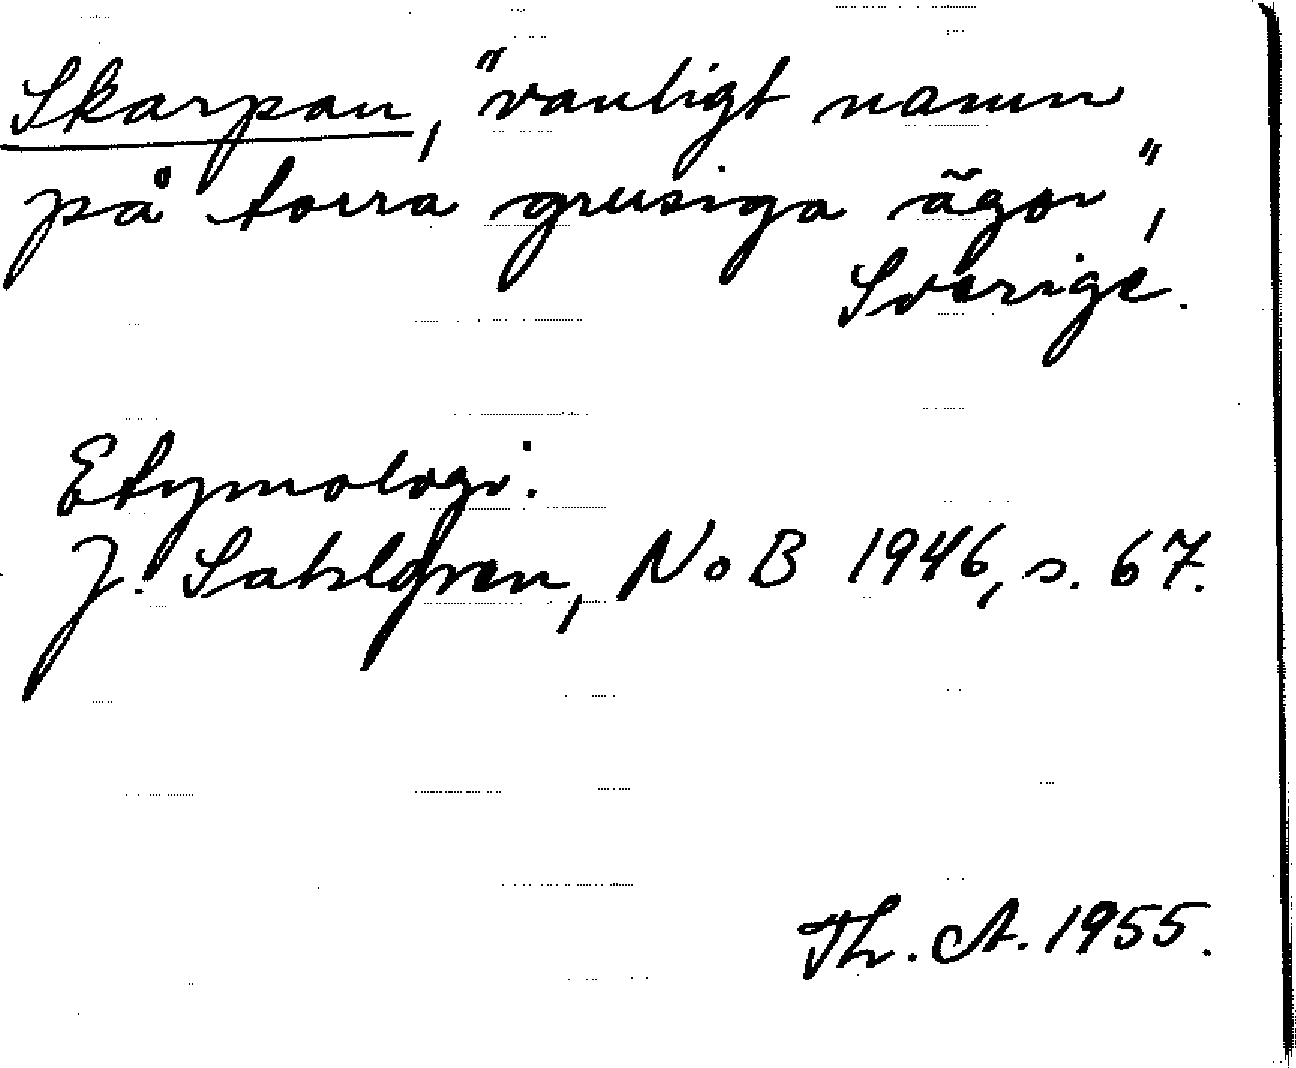 Skarpan, "vanligt namn
på torra grusiga ägor",
Sverige.
Etymologi:
J. Sahlgren, NoB 1946, s. 67.
Th. A. 1955.